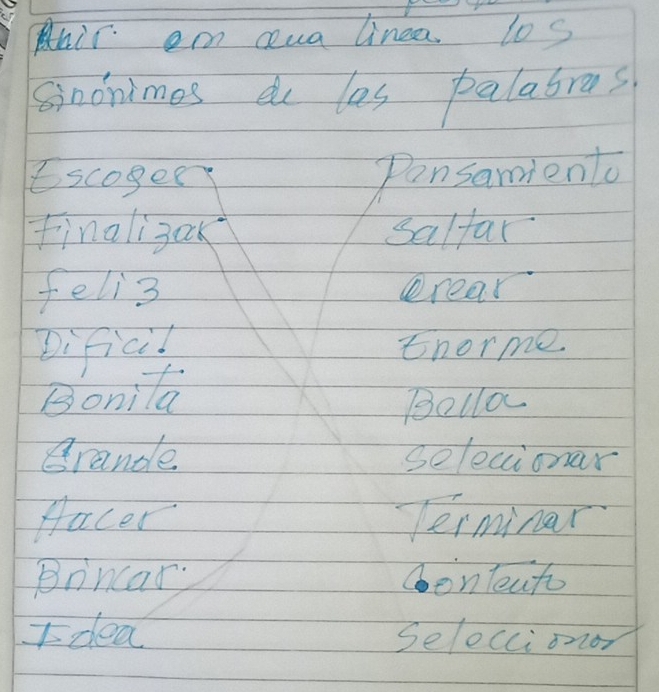 Unir em una linea los
sinónimos de las palabras.
Escoger Pensamiento
Finalizar saltar
feliz Crear
Dificil Enorme
Bonita Bella
Grande seleccionar
Hacer Terminar
Brincar Contento
Idea seleccionar